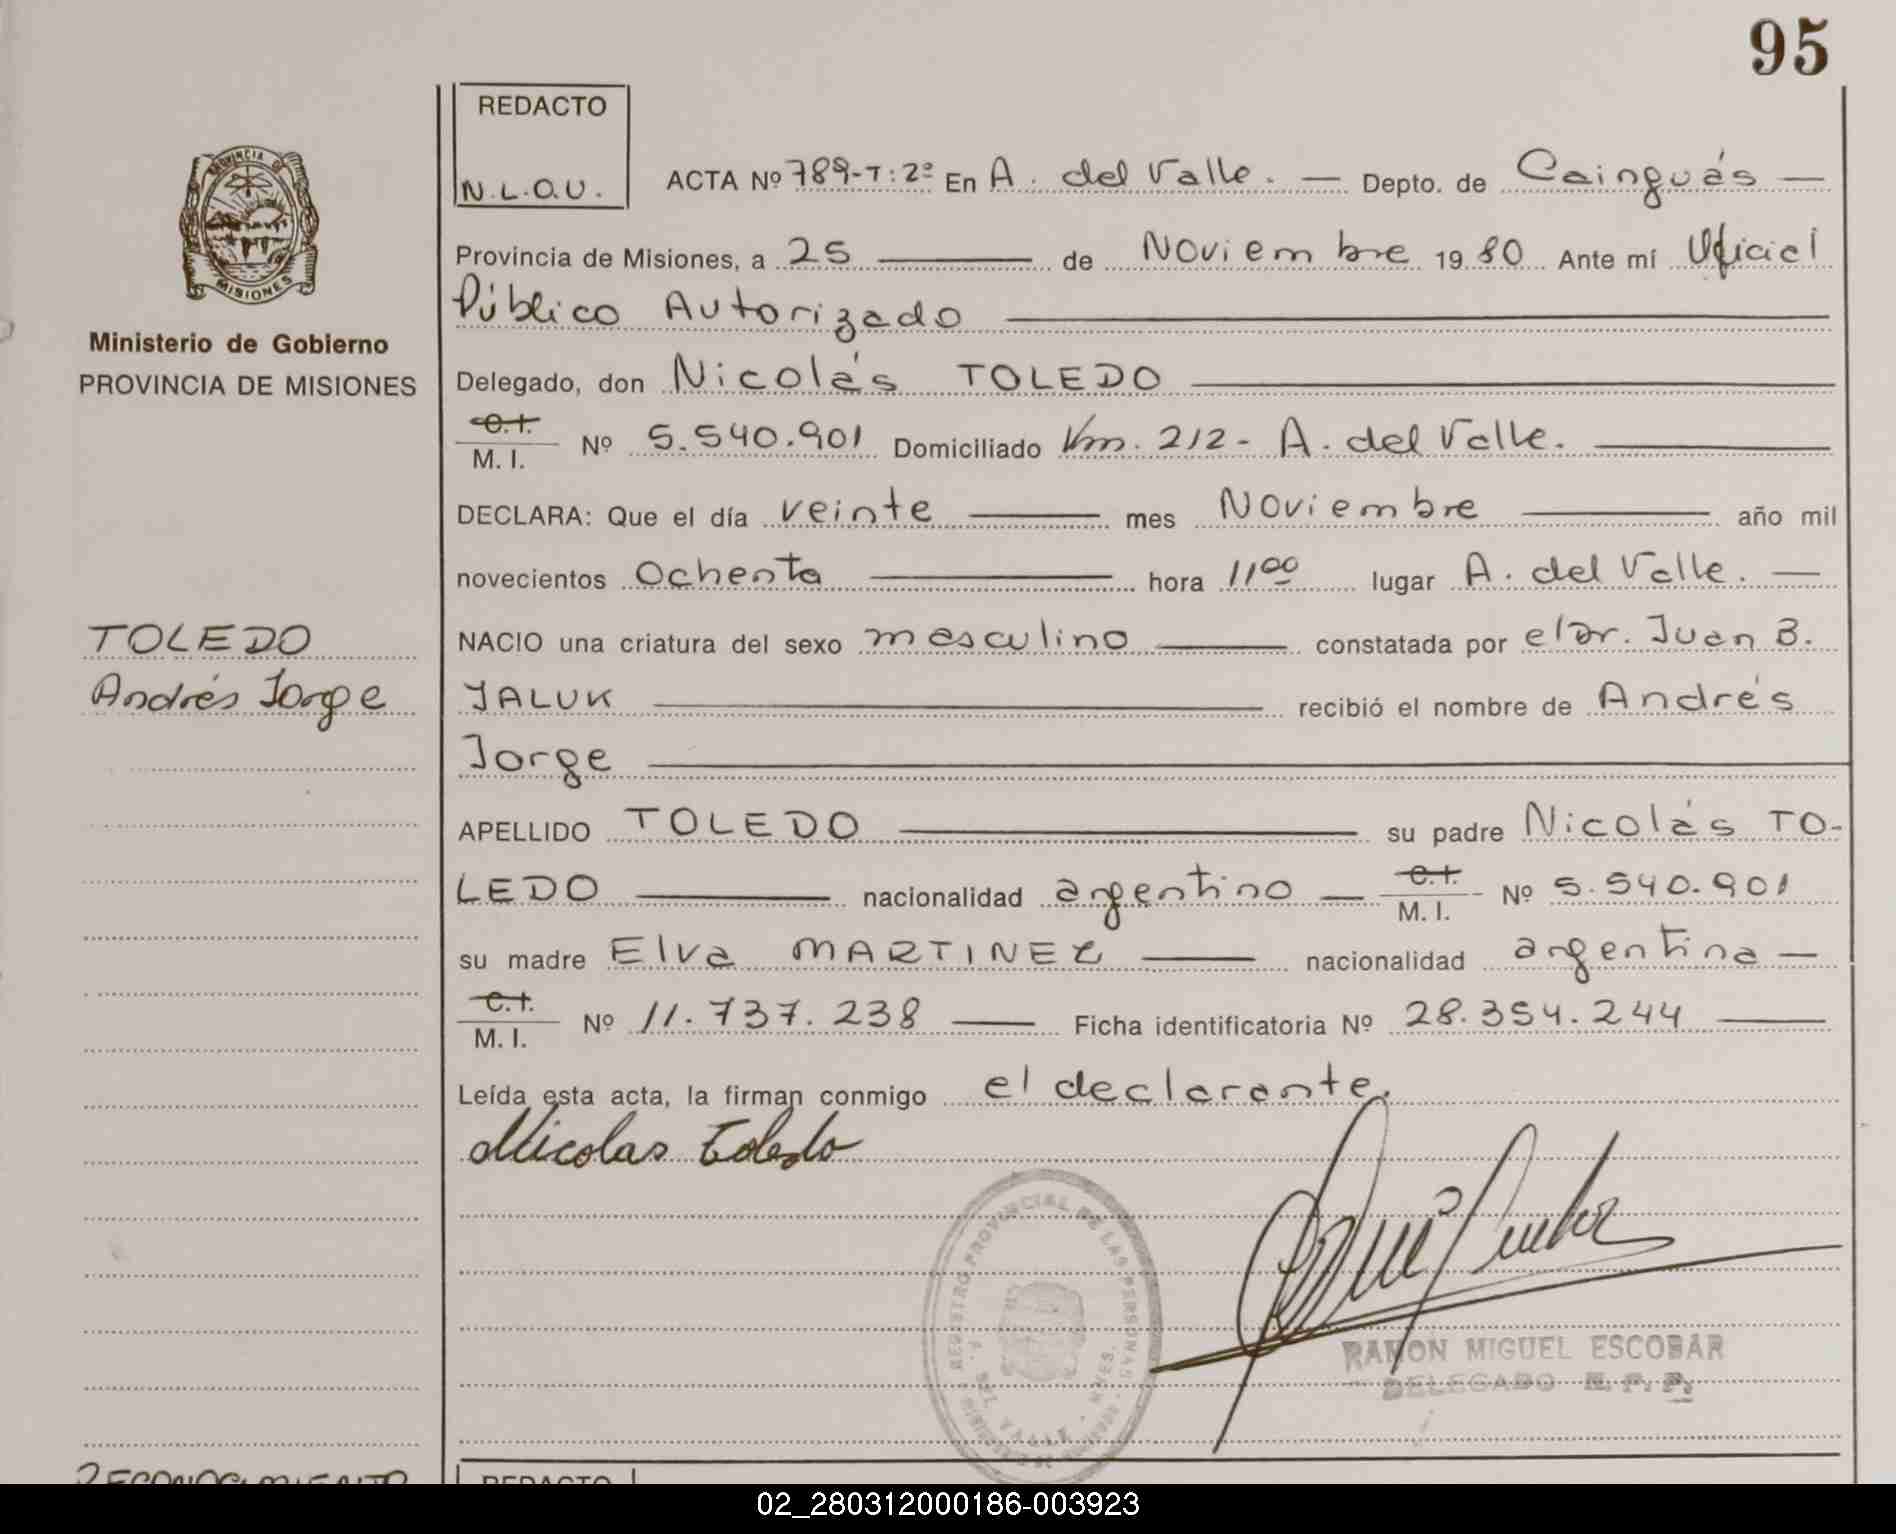 95
REDACTO
N.L.O.U.
PROVINCIA DE
MISIONES
Ministerio de Gobierno
PROVINCIA DE MISIONES
TOLEDO
Andrés Jorge
ACTA Nº 789-T:2º En A. del Valle. — Depto. de Cainguás —
Provincia de Misiones, a 25 — de Noviembre 1980 Ante mí Oficial
Público Autorizado —
Delegado, don Nicolás TOLEDO —
C.I.
M. I. Nº 5.540.901 Domiciliado Km. 212- A. del Valle. —
DECLARA: Que el día veinte — mes Noviembre — año mil
novecientos Ochenta — hora 11 00 lugar A. del Valle. —
NACIO una criatura del sexo masculino — constatada por el Dr. Juan B.
JALUK — recibió el nombre de Andrés
Jorge —
APELLIDO TOLEDO — su padre Nicolás TO-
LEDO — nacionalidad argentino — C.I. M. I. Nº 5.540.901
su madre Elva MARTINEZ — nacionalidad argentina —
C.I.
M. I. Nº 11.737.238 — Ficha identificatoria Nº 28.354.244 —
Leída esta acta, la firman conmigo el declarante.
Nicolas Toledo
REGISTRO PROVINCIAL DE LAS PERSONAS
A. DEL VALLE - MNES.
RAMON MIGUEL ESCOBAR
DELEGADO R. P. P.
RECONOCIMIENTO
REDACTO
02_280312000186-003923